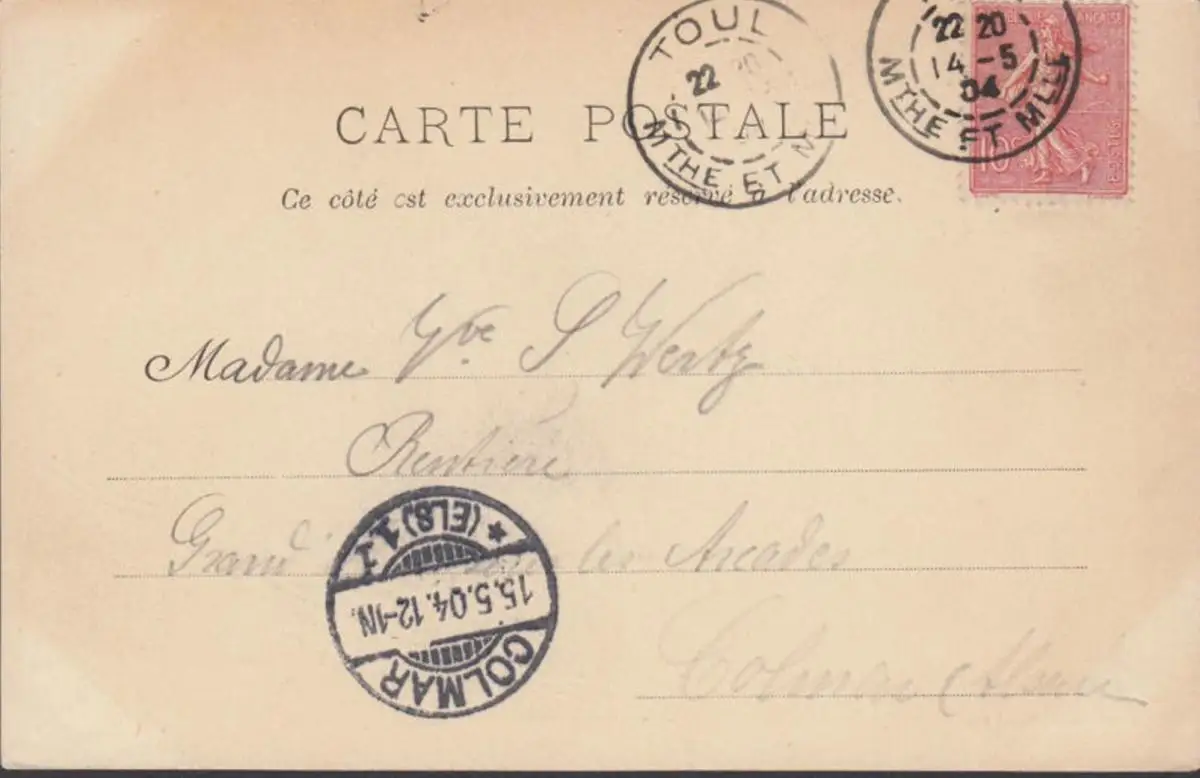 TOUL
22 20
MTHE ET M
22 20
14-5
04
MTHE ET MLLE
10
POSTES
CARTE POSTALE
Ce côté est exclusivement réservé à l'adresse.
Madame Vve S Wertz
Rentière
Grand' sous les Arcades
Colmar Alsace
COLMAR
15.5.04.12-1N.
* (ELS) 1 1